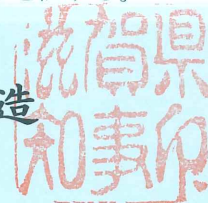 滋賀県
知事印
造